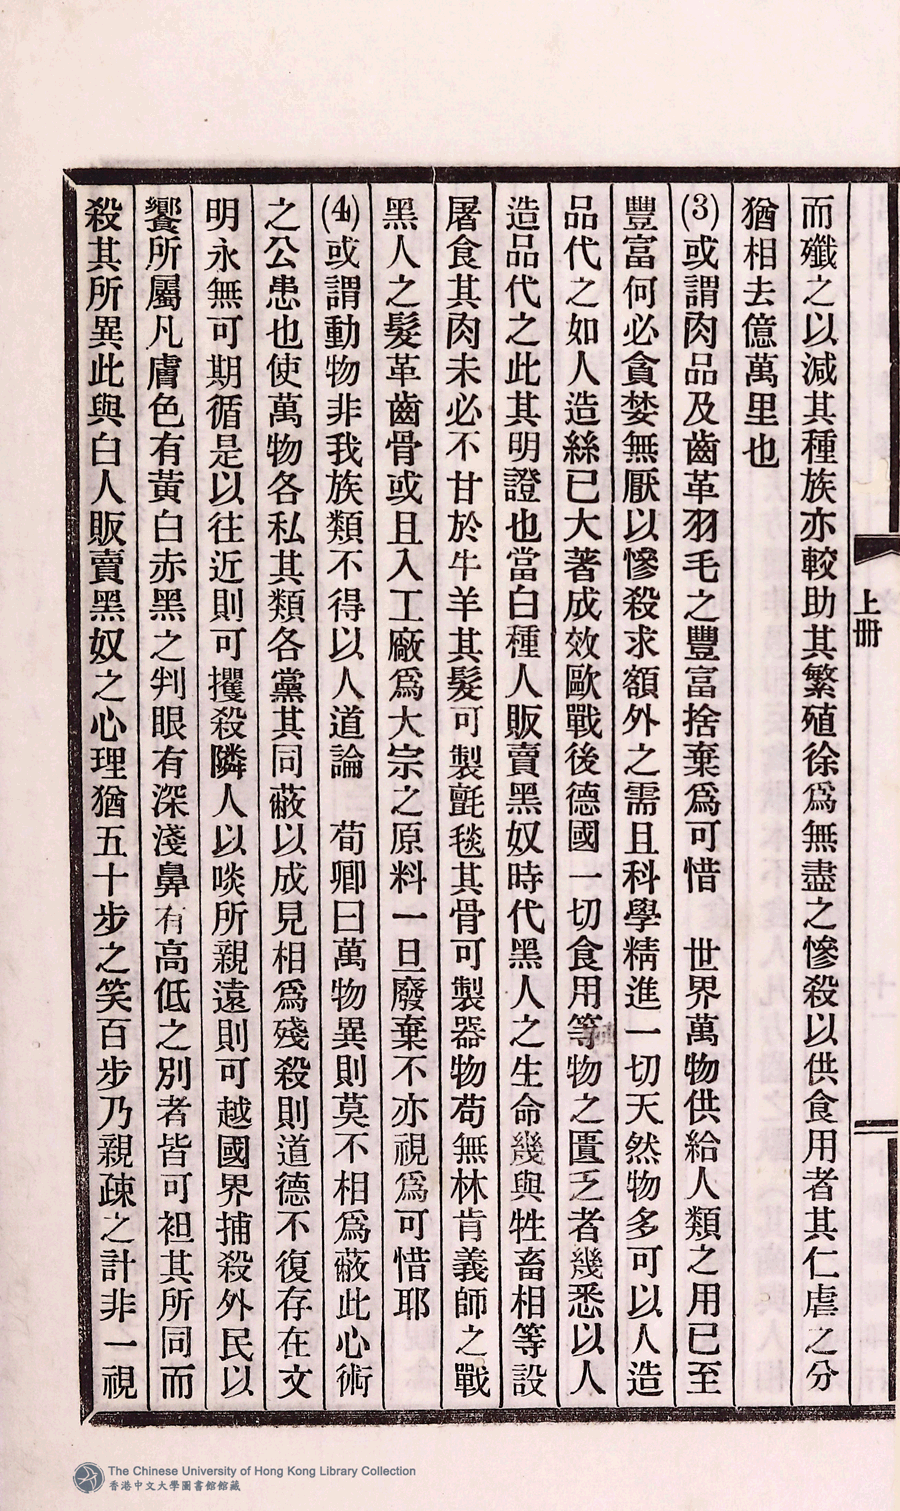 上册
而殲之以減其種族亦較助其繁殖徐爲無盡之慘殺以供食用者其仁虐之分
猶相去億萬里也
(3)或謂肉品及齒革羽毛之豐富捨棄爲可惜　世界萬物供給人類之用已至
豐富何必貪婪無厭以慘殺求額外之需且科學精進一切天然物多可以人造
品代之如人造絲已大著成效歐戰後德國一切食用等物之匱乏者幾悉以人
造品代之此其明證也當白種人販賣黑奴時代黑人之生命幾與牲畜相等設
屠食其肉未必不甘於牛羊其髮可製氈毯其骨可製器物苟無林肯義師之戰
黑人之髮革齒骨或且入工廠爲大宗之原料一旦廢棄不亦視爲可惜耶
(4)或謂動物非我族類不得以人道論　荀卿曰萬物異則莫不相爲蔽此心術
之公患也使萬物各私其類各黨其同蔽以成見相爲殘殺則道德不復存在文
明永無可期循是以往近則可攫殺隣人以啖所親遠則可越國界捕殺外民以
饗所屬凡膚色有黃白赤黑之判眼有深淺鼻有高低之別者皆可袒其所同而
殺其所異此與白人販賣黑奴之心理猶五十步之笑百步乃親疎之計非一視
The Chinese University of Hong Kong Library Collection
香港中文大學圖書館館藏